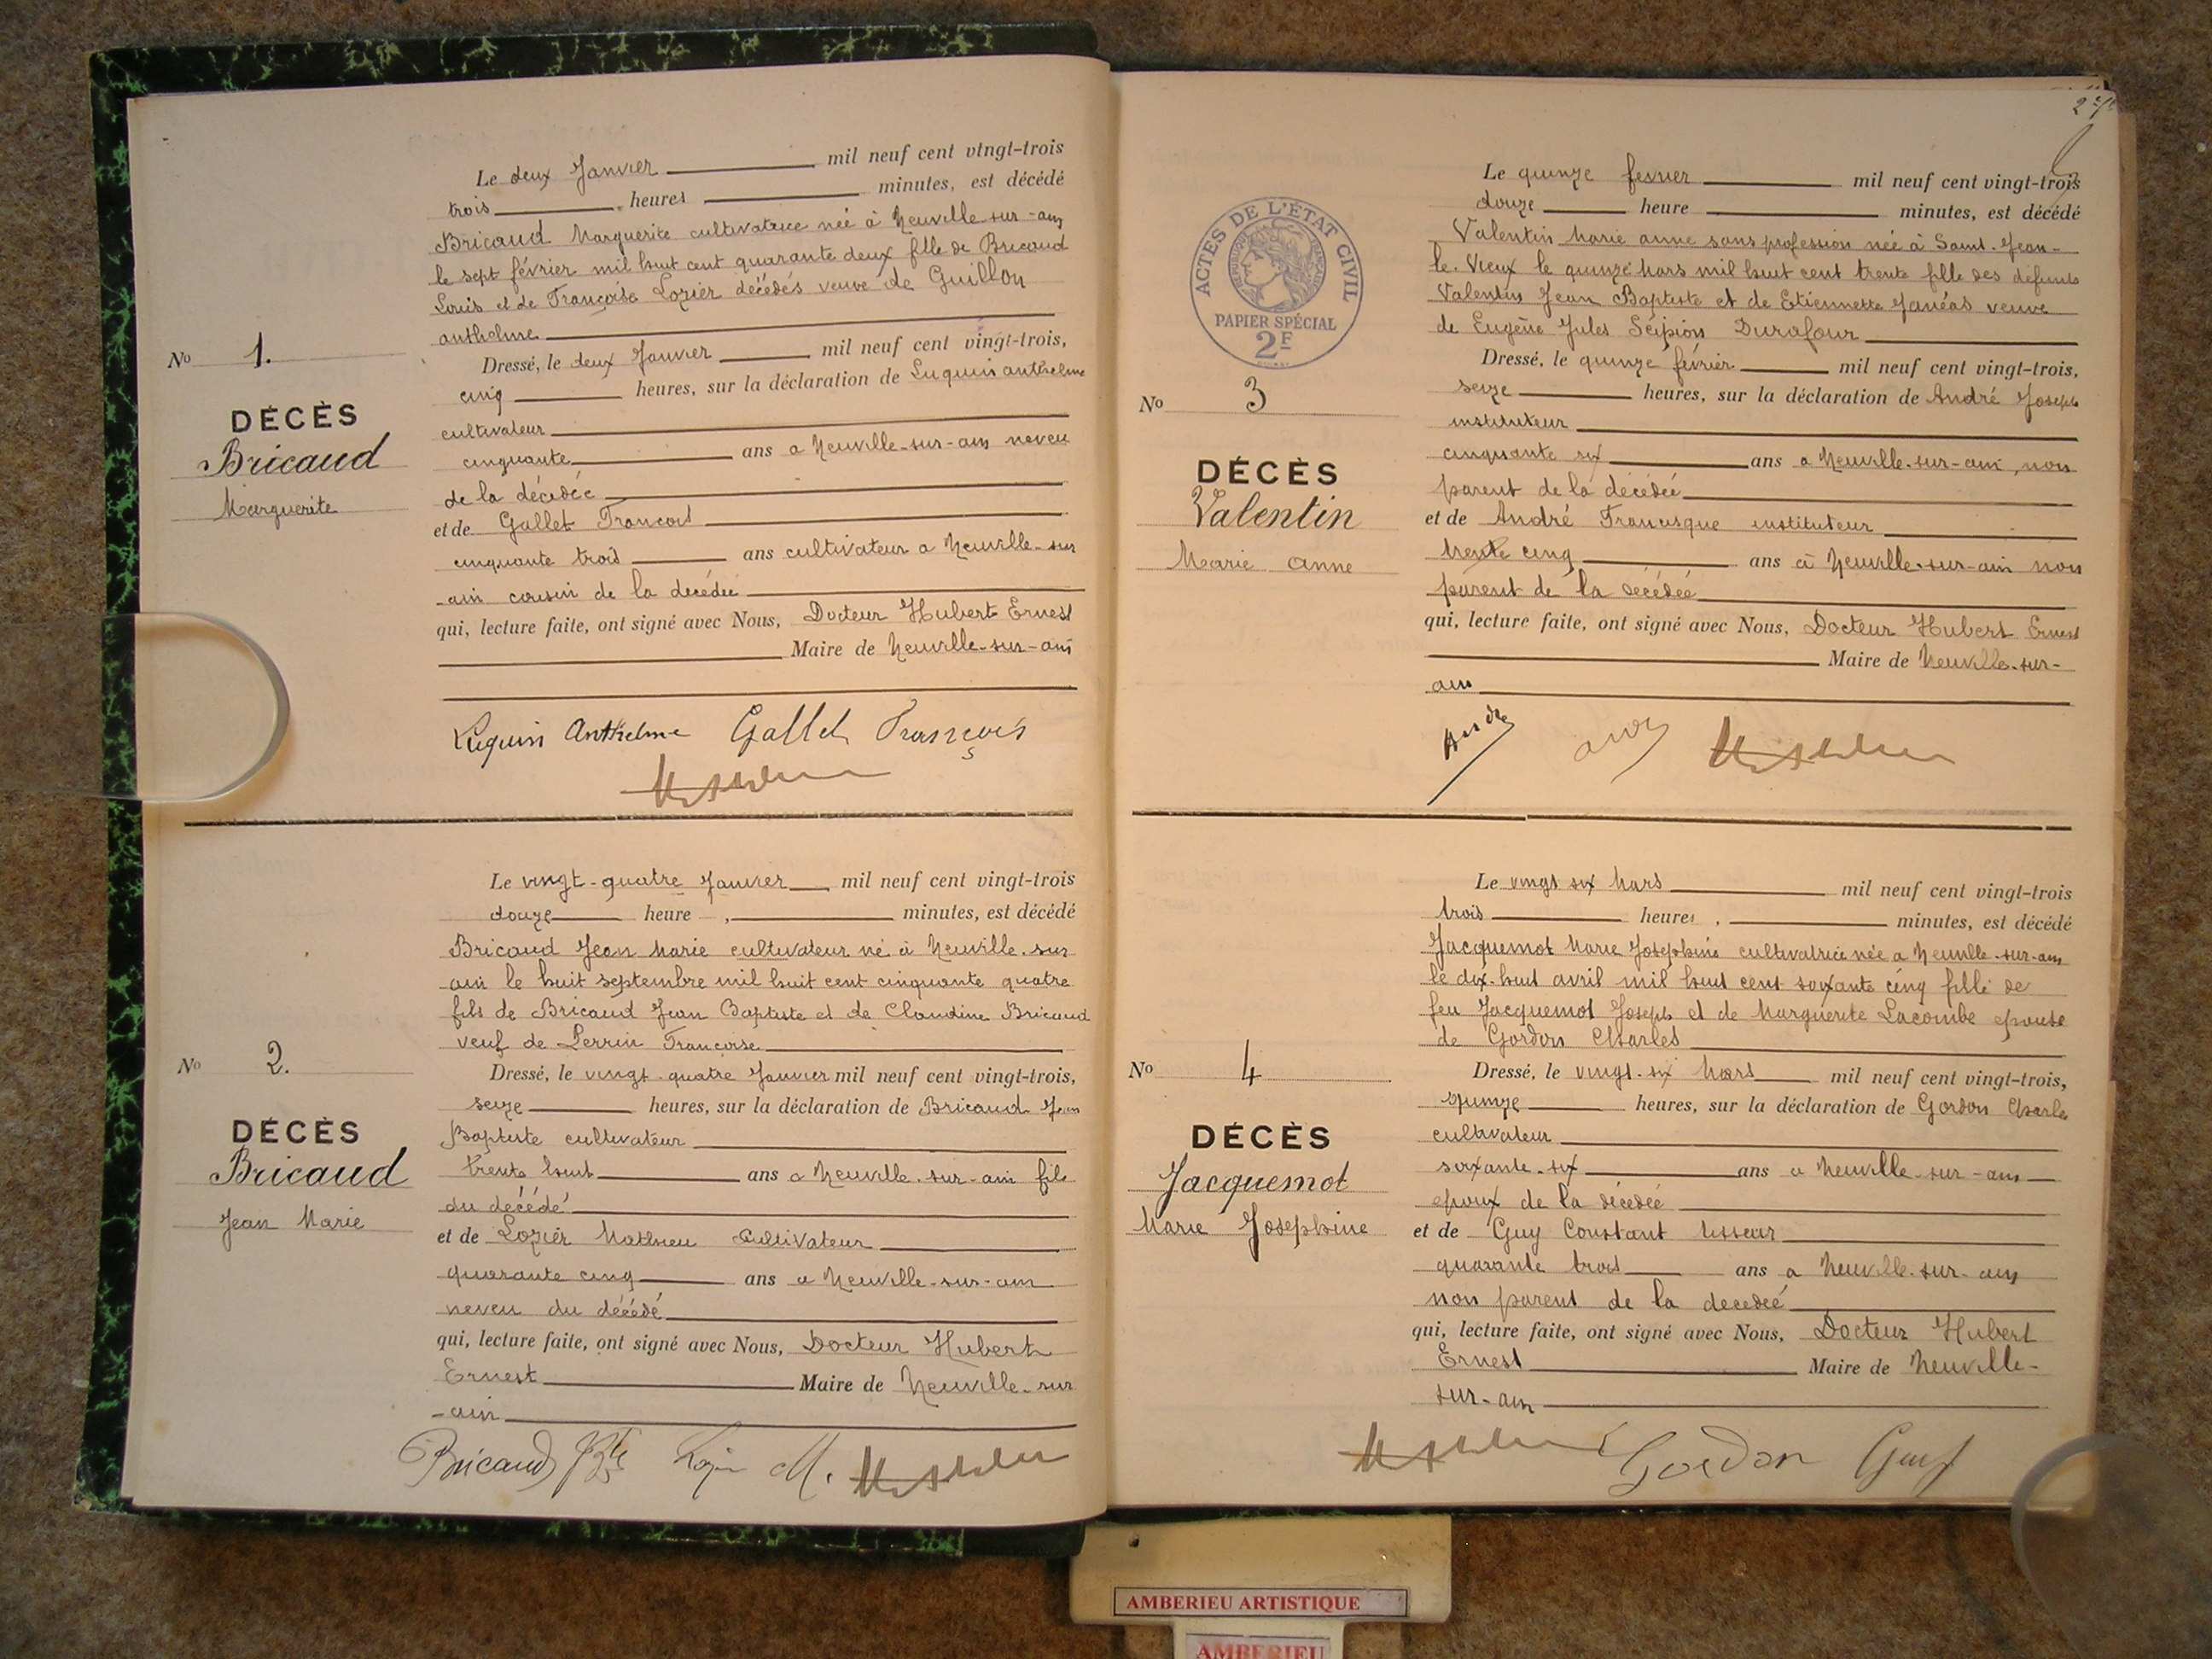 Le deux Janvier mil neuf cent vingt-trois
trois heures minutes, est décédé
Bricaud Marguerite cultivatrice née à Neuville-sur-ain
le sept février mil huit cent quarante deux fille de Bricaud
Louis et de Françoise Lozier décédés veuve de Guillon
anthelme
No 1.
DÉCÈS
Bricaud
Marguerite
Dressé, le deux Janvier mil neuf cent vingt-trois,
cinq heures, sur la déclaration de Luquin anthelme
cultivateur
cinquante ans a Neuville-sur-ain neveu
de la décédée
et de Gallet Francois
cinquante trois ans cultivateur a Neuville-sur
-ain cousin de la décédée
qui, lecture faite, ont signé avec Nous, Docteur Hubert Ernest
Maire de Neuville-sur-ain
Luquin Anthelme Gallet François
Le vingt-quatre Janvier mil neuf cent vingt-trois
douze heure minutes, est décédé
Bricaud Jean Marie cultivateur né à Neuville-sur
-ain le huit septembre mil huit cent cinquante quatre
fils de Bricaud Jean Baptiste et de Claudine Bricaud
veuf de Perrin Francoise
No 2.
DÉCÈS
Bricaud
Jean Marie
Dressé, le vingt-quatre Janvier mil neuf cent vingt-trois,
seize heures, sur la déclaration de Bricaud Jean
Baptiste cultivateur
trente huit ans a Neuville-sur-ain fils
du décédé
et de Lozier Mathieu Cultivateur
quarante cinq ans a Neuville-sur-ain
neveu du décédé
qui, lecture faite, ont signé avec Nous, Docteur Hubert
Ernest Maire de Neuville-sur
-ain
Bricaud Jn Bte M.
ACTES DE L'ÉTAT CIVIL
RÉPUBLIQUE FRANÇAISE
PAPIER SPÉCIAL
2F
Le quinze fevrier mil neuf cent vingt-trois
douze heure minutes, est décédé
Valentin Marie anne sans profession née à Saint-Jean-
le-Vieux le quinze Mars mil huit cent trente fille des défunts
Valentin Jean Baptiste et de Etiennette Janéas veuve
de Eugène Jules Scipion Durafour
No 3
DÉCÈS
Valentin
Marie anne
Dressé, le quinze février mil neuf cent vingt-trois,
seize heures, sur la déclaration de André Joseph
instituteur
cinquante six ans a Neuville-sur-ain, non
parent de la décédée
et de André Francisque instituteur
trente cinq ans à Neuville-sur-ain non
parent de la décédée
qui, lecture faite, ont signé avec Nous, Docteur Hubert Ernest
Maire de Neuville-sur-
ain
André
Le vingt six Mars mil neuf cent vingt-trois
trois heures minutes, est décédé
Jacquemot Marie Joséphine cultivatrice née a Neuville-sur-ain
le dix-huit avril mil huit cent soixante cinq fille de
feu Jacquemot Joseph et de Marguerite Lacombe epouse
de Gordon Charles
No 4
DÉCÈS
Jacquemot
Marie Josephine
Dressé, le vingt-six Mars mil neuf cent vingt-trois,
quinze heures, sur la déclaration de Gordon Charles
cultivateur
soixante-six ans a Neuville-sur-ain
epoux de la décédée
et de Guy Constant tisseur
quarante trois ans a Neuville-sur-ain
non parent de la decedée
qui, lecture faite, ont signé avec Nous, Docteur Hubert
Ernest Maire de Neuville-
sur-ain
Gordon Guy
AMBERIEU ARTISTIQUE
AMBERIEU